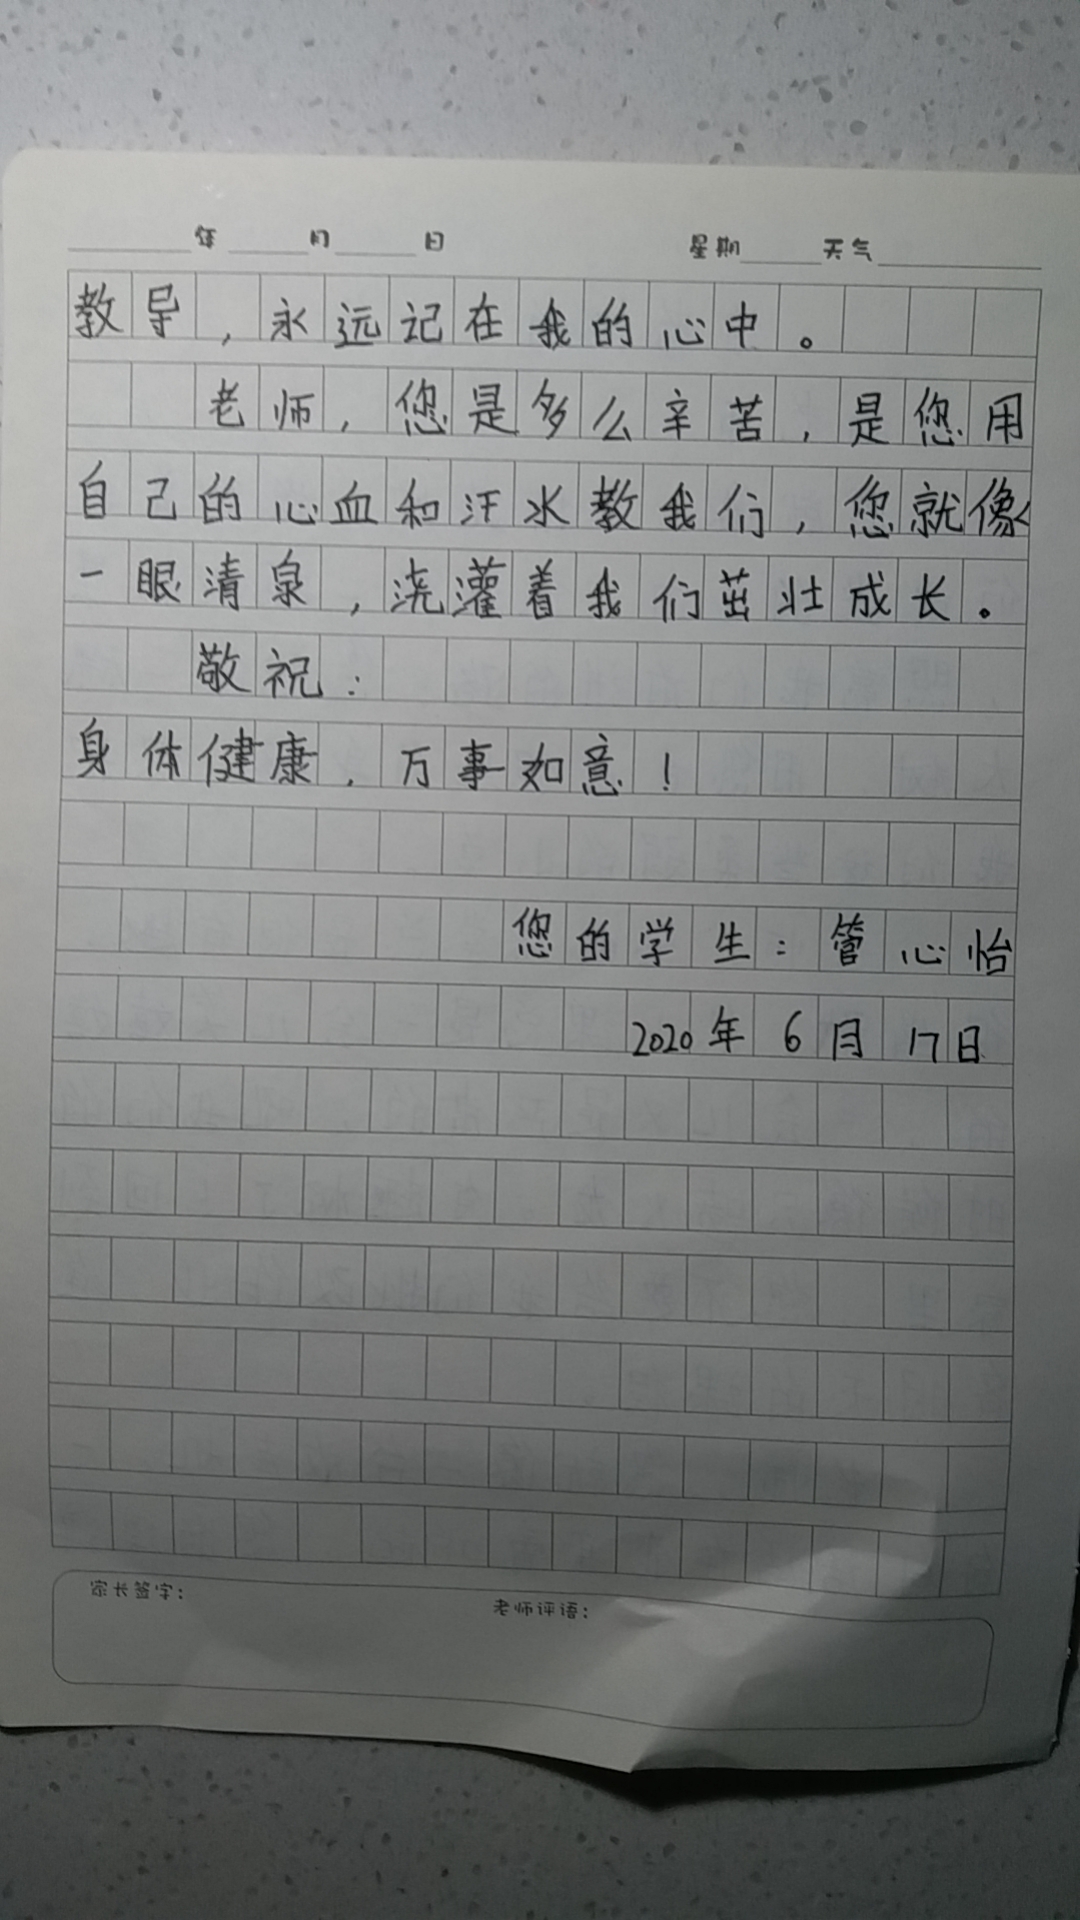 年 月 日 星期 天气
教导，永远记在我的心中。
老师，您是多么辛苦，是您用
自己的心血和汗水教我们，您就像
一眼清泉，浇灌着我们茁壮成长。
敬祝：
身体健康，万事如意！
您的学生：管心怡
2020年6月17日
家长签字：
老师评语：